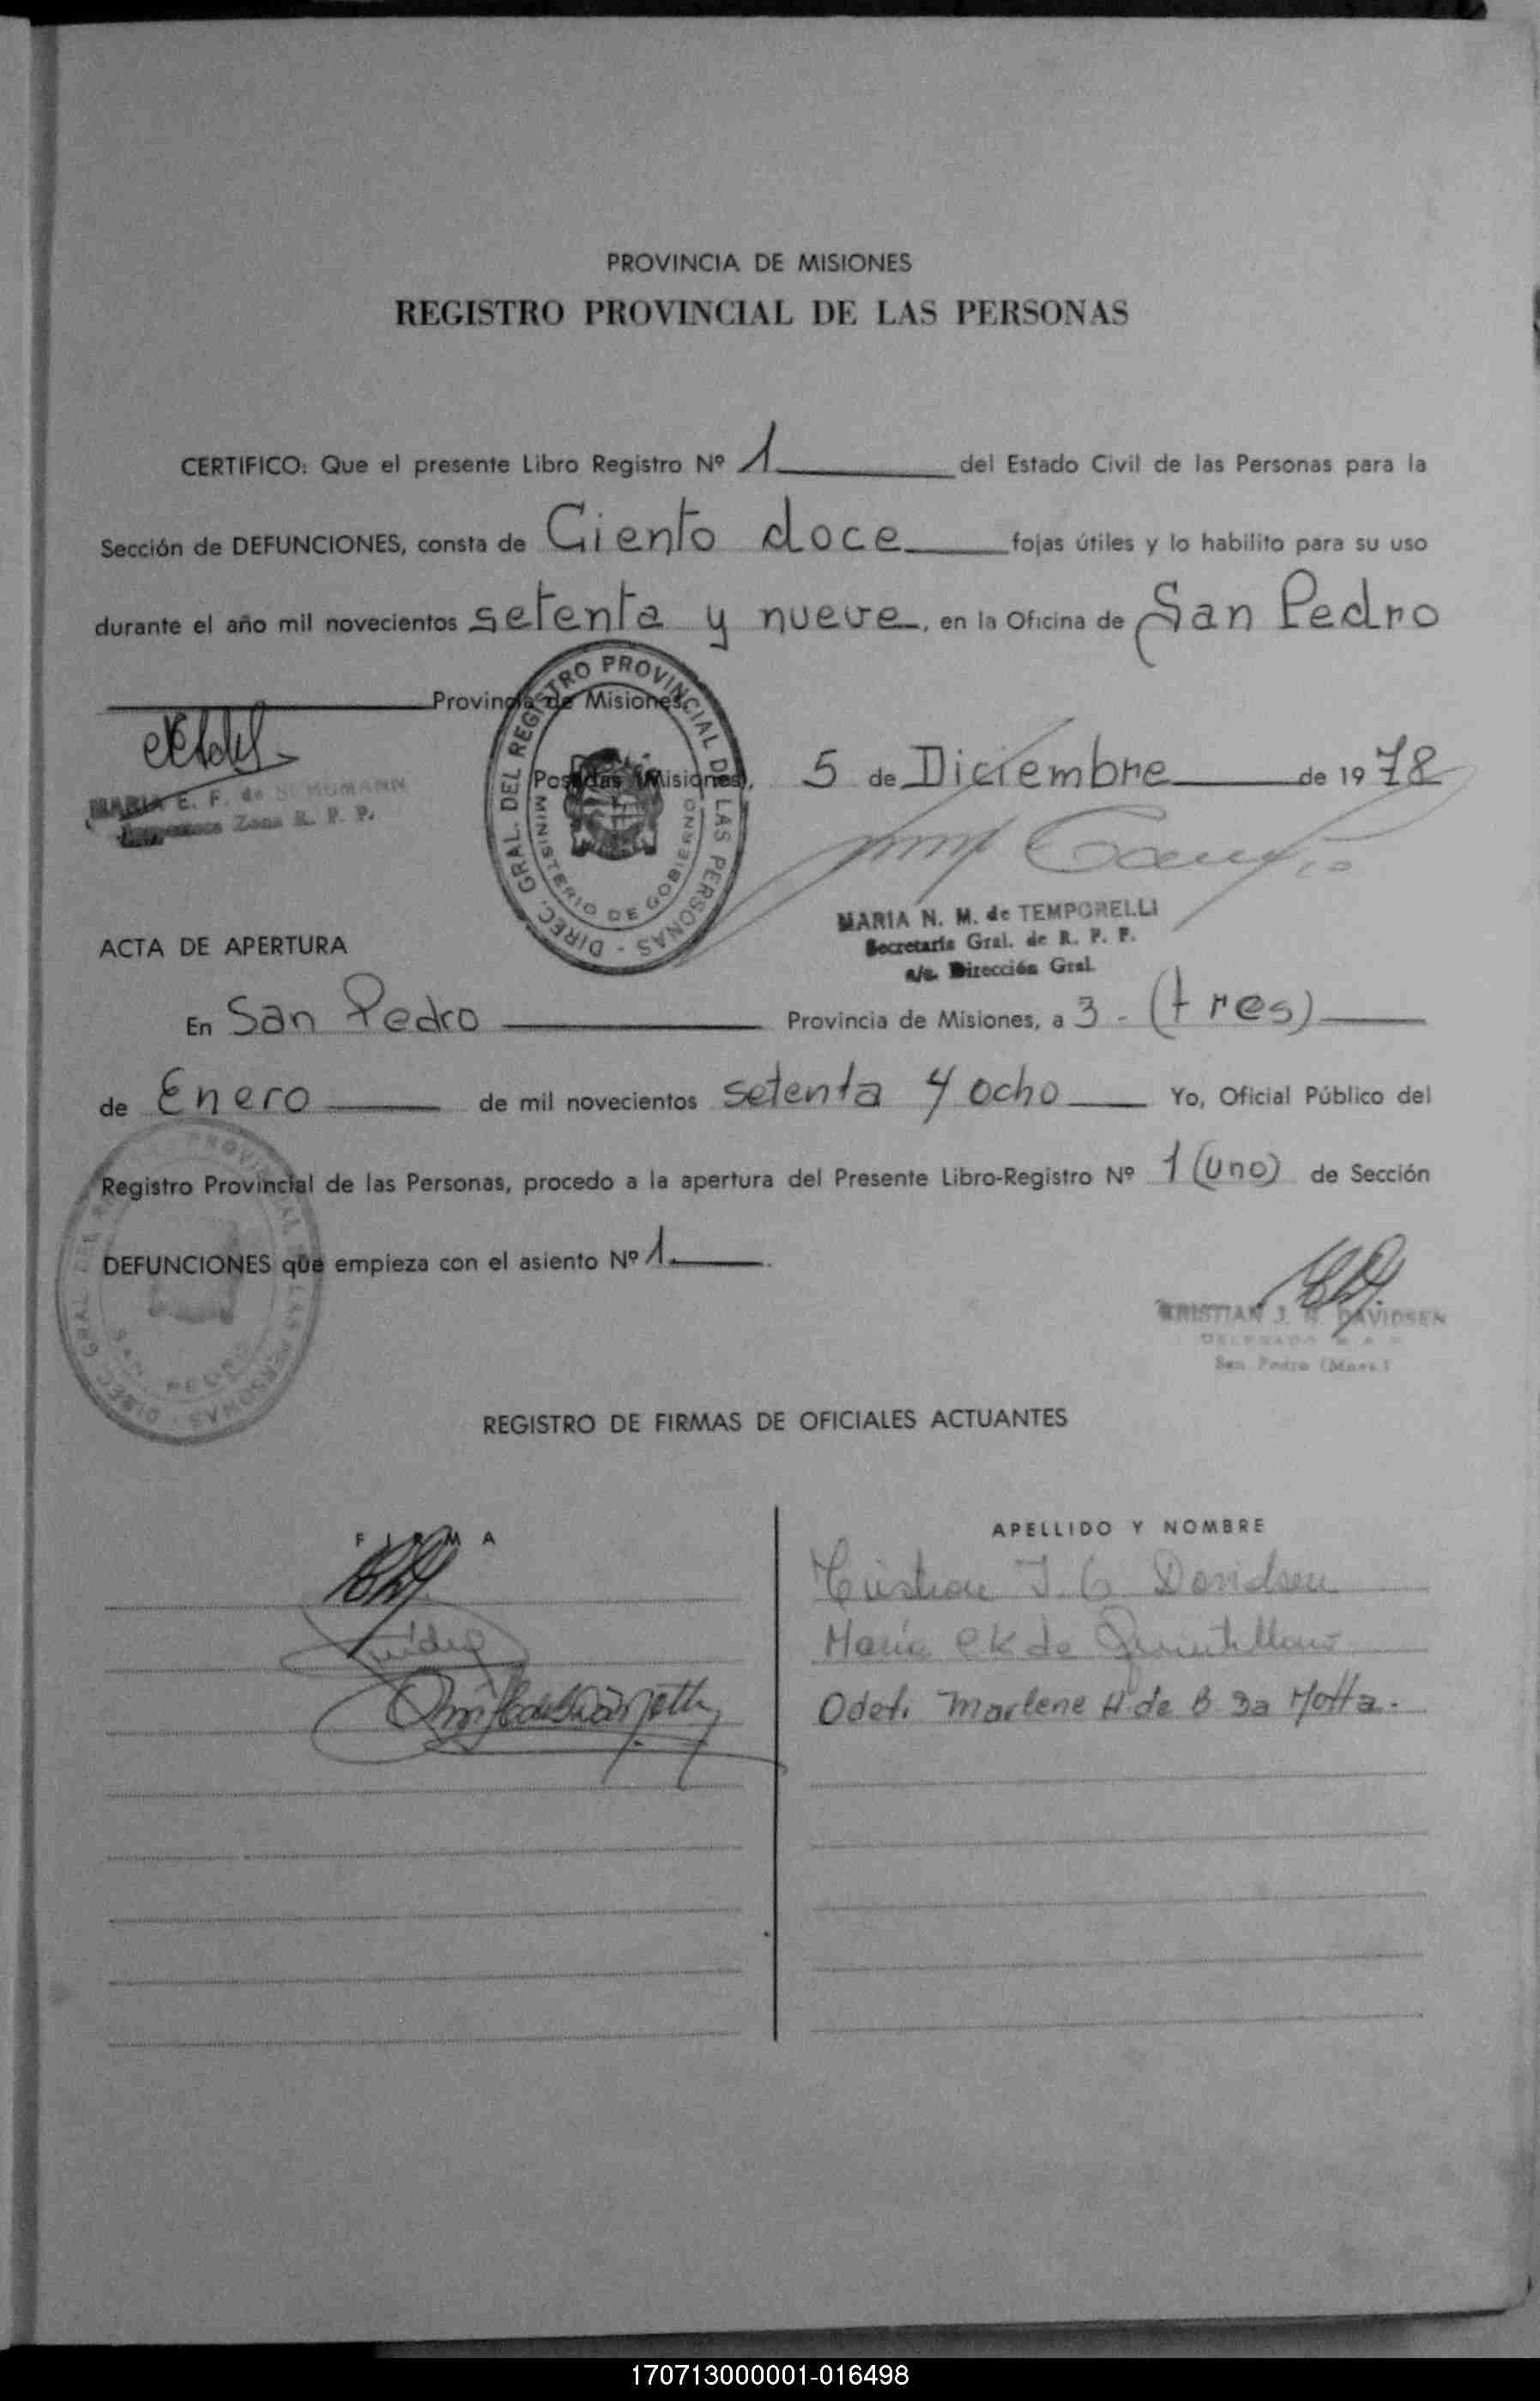 PROVINCIA DE MISIONES
REGISTRO PROVINCIAL DE LAS PERSONAS
CERTIFICO: Que el presente Libro Registro Nº 1 del Estado Civil de las Personas para la
Sección de DEFUNCIONES, consta de Ciento doce fojas útiles y lo habilito para su uso
durante el año mil novecientos setenta y nueve, en la Oficina de San Pedro
Provincia de Misiones.
Posadas (Misiones), 5 de Diciembre de 1978
MARIA E. F. de SCHUMANN
Zona R. P. P.
DIREC. GRAL. DEL REGISTRO PROVINCIAL DE LAS PERSONAS -
MINISTERIO DE GOBIERNO
MARIA N. M. de TEMPORELLI
Secretaria Gral. de R. P. P.
a/c. Dirección Gral.
ACTA DE APERTURA
En San Pedro Provincia de Misiones, a 3 - (tres)
de Enero de mil novecientos setenta y ocho Yo, Oficial Público del
Registro Provincial de las Personas, procedo a la apertura del Presente Libro-Registro Nº 1 (uno) de Sección
DEFUNCIONES que empieza con el asiento Nº 1.
DIREC. GRAL. DEL PROVINCIAL LAS PERSONAS -
SAN PEDRO
KRISTIAN J. DAVIDSEN
DELEGADO
San Pedro (Mnes.)
REGISTRO DE FIRMAS DE OFICIALES ACTUANTES
FIRMA
APELLIDO Y NOMBRE
J. G Davidsen
María de
Odeti Marlene H. de B. Da Motta.
170713000001-016498